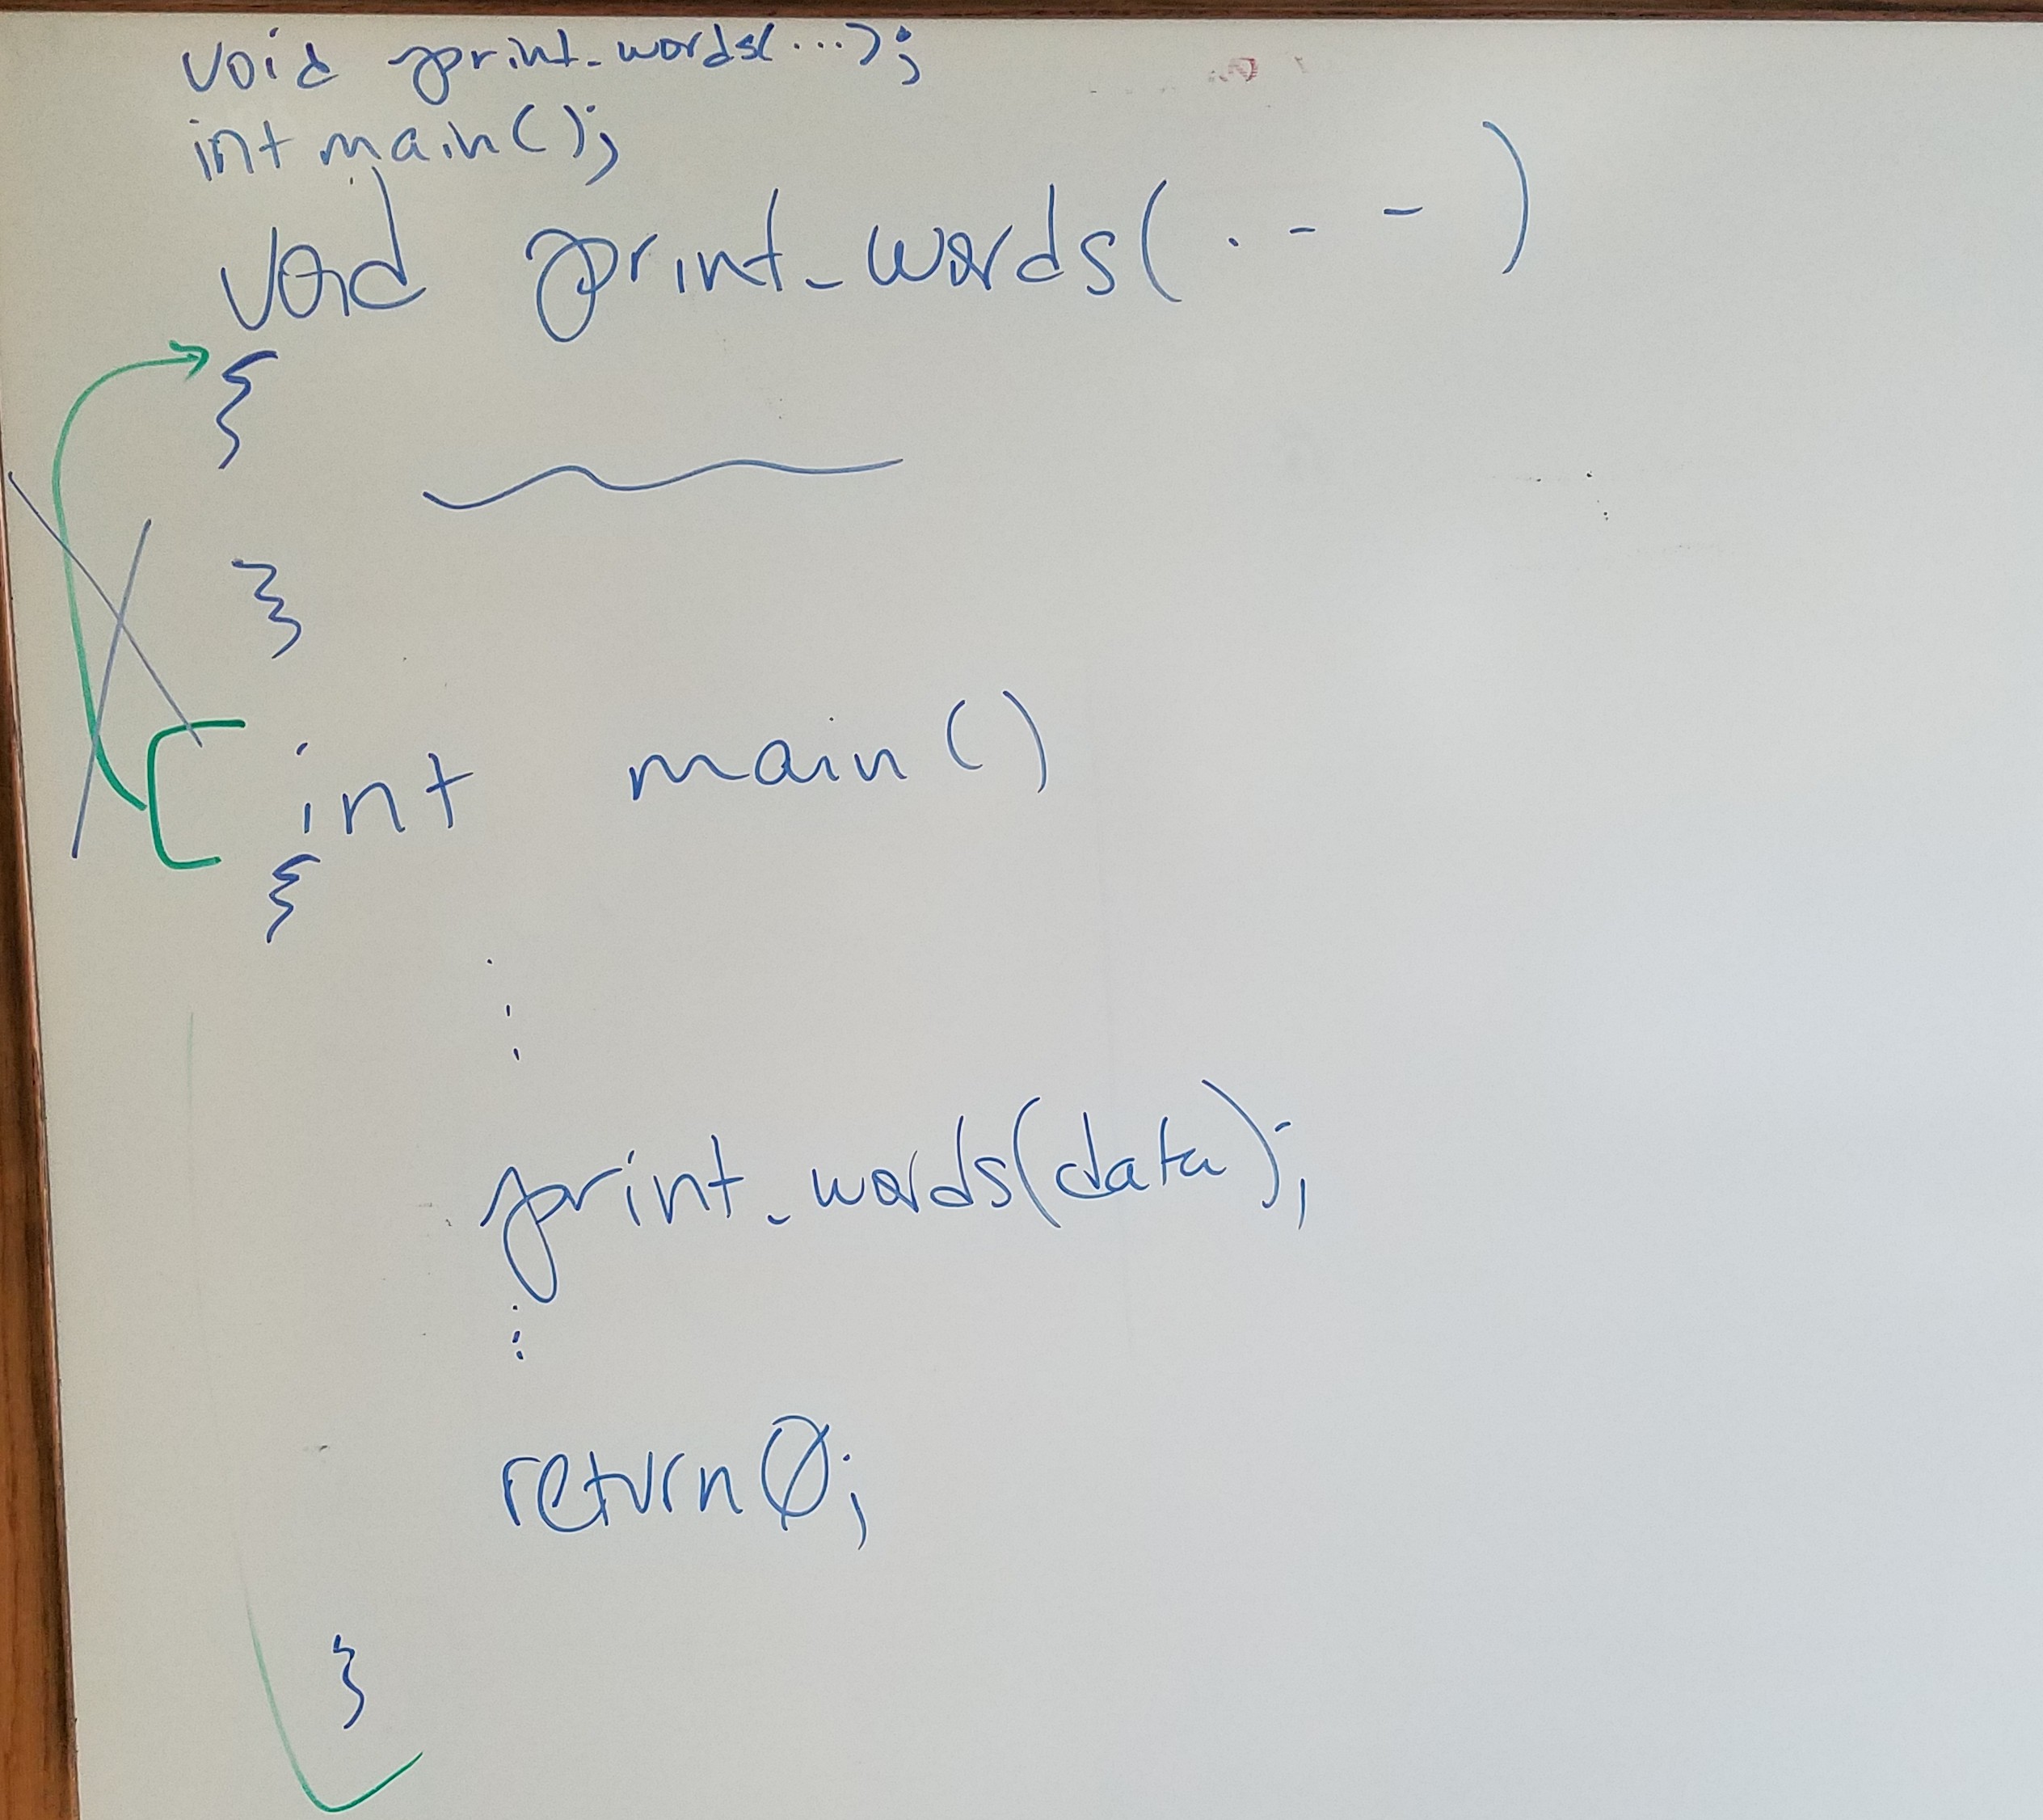 void print_words(...);
int main();
void print_words(...)
{
}
int main()
{
⋮
print_words(data);
⋮
return 0;
}